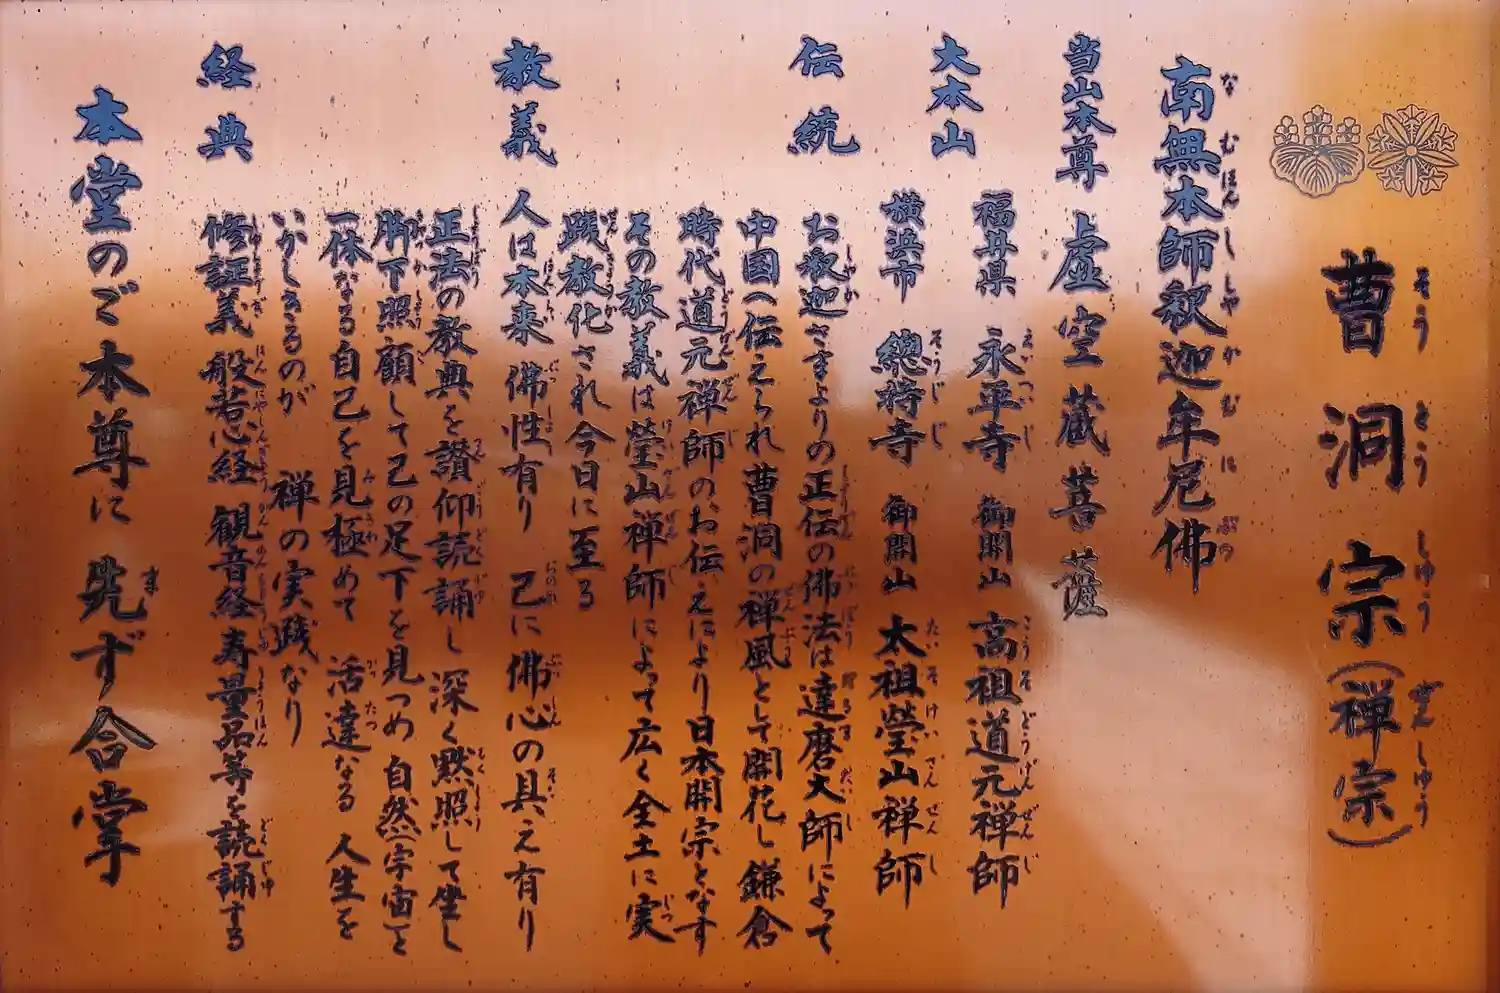 曹洞宗(禅宗)
南無本師釈迦牟尼佛
当山本尊 虚空蔵菩薩
大本山 福井県 永平寺 御開山 高祖道元禅師
横浜市 總持寺 御開山 太祖瑩山禅師
伝統 お釈迦さまよりの正伝の佛法は達磨大師によって
中国へ伝えられ曹洞の禅風として開花し鎌倉
時代道元禅師の、お伝えにより日本開宗となす
その教義は瑩山禅師によって広く全土に実
践教化され今日に至る
教義 人は本来佛性有り 己に佛心の具え有り
正法の教典を讃仰読誦し深く黙照して坐し
脚下照顧して己の足下を見つめ自然宇宙と
一体なる自己を見極めて 活達なる人生を
いかしきるのが 禅の実践なり
経典 修証義 般若心経 観音経 寿量品等を読誦する
本堂のご本尊に 先ず合掌